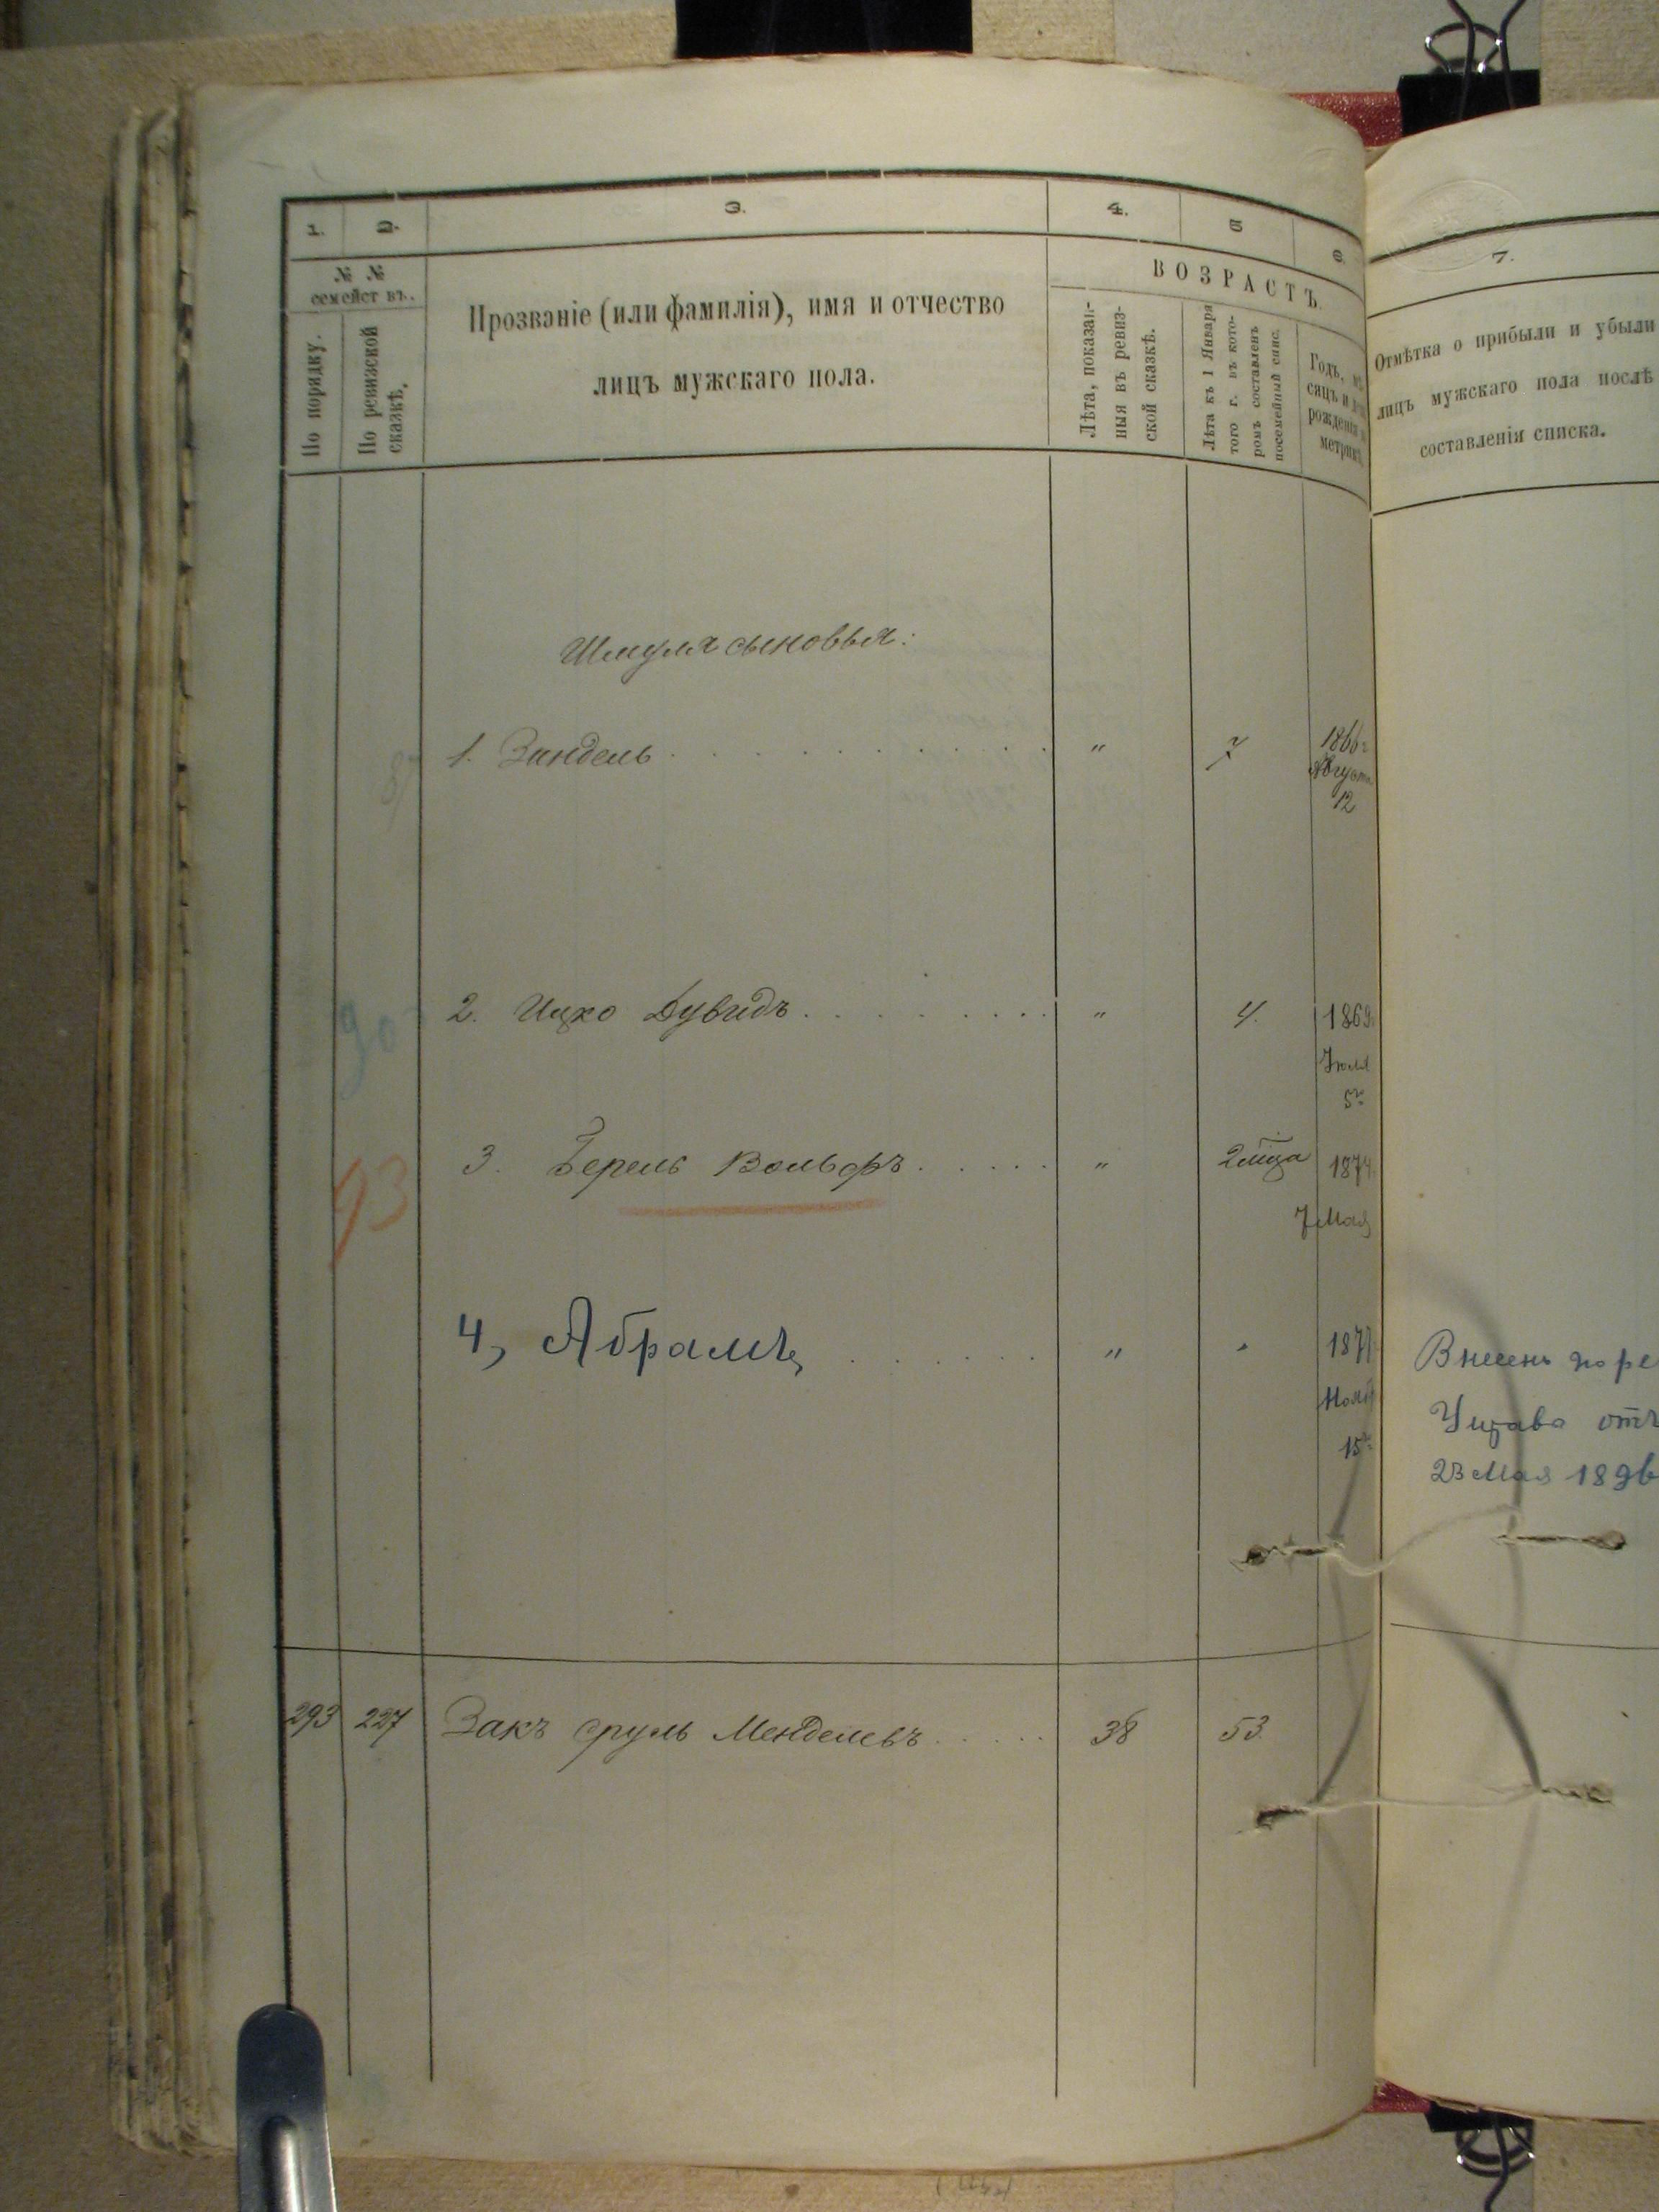 1. 2. 3. 4. 5 6.
№ №
семействъ.
По порядку.
По ревизской
сказкѣ.
Прозваніе (или фамилія), имя и отчество
лицъ мужскаго пола.
ВОЗРАСТЪ.
Лѣта, показан-
ныя въ ревиз-
ской сказкѣ.
Лѣта къ 1 Января
того г. въ кото-
ромъ составленъ
посемейный спис.
Годъ, мѣ
сяцъ и
рожденія
метрик
7.
Отмѣтка о прибыли и убыли
лицъ мужскаго пола послѣ
составленія списка.
Шмуля сыновья:
87
1. Зиндель . . . . . . . . . . . . . " 7 1866 г
Августа
12
90
2. Ицко Дувидъ . . . . . . . . . " 4. 1869
Іюля
5 г.
93
3. Берель Вольфъ . . . . . " 2 мца 1874
7 Мая
4, Абрамъ, . . . . . . . " " 1877
Нояб
15 г.
Внесенъ по ре
23 Мая 1896
293 227 Закъ Сруль Менделевъ . . . . . 38 53.